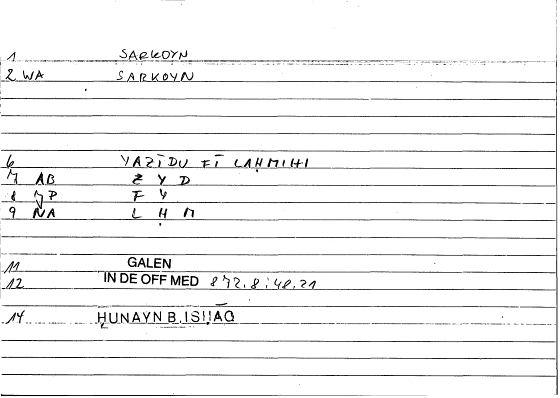 1 SARKOYN
2 WA SARKOYN
6 YAZĪDU FĪ LAḤMIHI
7 AB Z Y D
8 JP F Y
9 NA L Ḥ M
11 GALEN
12 IN DE OFF MED 872.8:48.21
14 ḤUNAYN B. ISḤĀQ